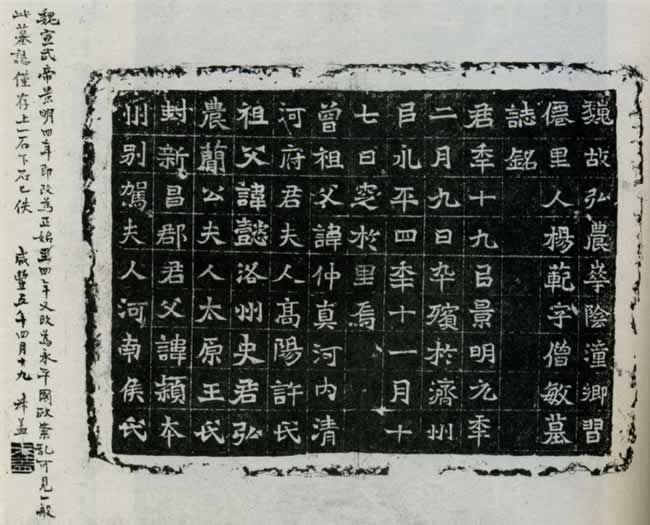 魏故弘農華陰潼鄉習
僊里人楊範字僧敏墓
誌銘
君秊十九㠯景明元秊
二月九日卒殯於濟州
㠯永平四秊十一月十
七日窆於里焉
曾祖父諱仲真河內清
河府君夫人高陽許氏
祖父諱懿洛州史君弘
農蘭公夫人太原王氏
封新昌郡君父諱穎本
州别駕夫人河南侯氏
魏宣武帝景明四年即改為正始至四年又改為永平國政紊亂可見一般
此墓誌僅存上一石下石已佚 咸豐五年四月十九